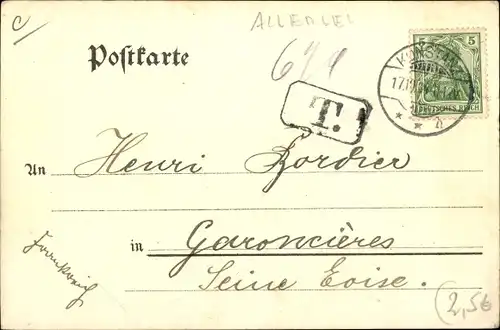 c
ALLERLEI
Postkarte
5 5
DEUTSCHES REICH
T.
An Henri Bordier
in Garoncières
Seine Eoise.
Frankreich
(2,50